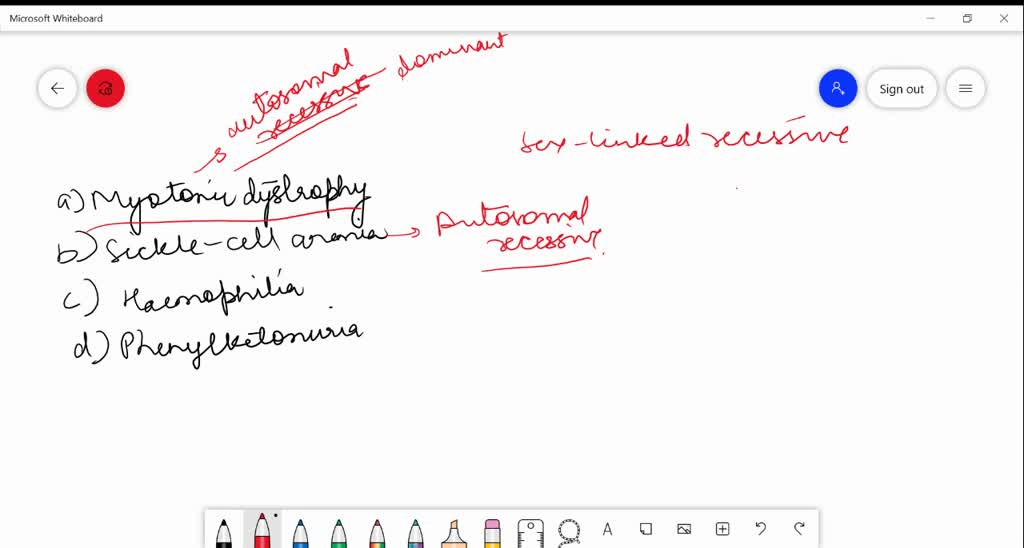 Microsoft Whiteboard
Sign out
autosomal
recessive dominant
sex-linked recessive
a) Myotonic dystrophy
b) Sickle-cell anemia → Autosomal
recessive.
c) Haemophilia
d) Phenylketonuria
A